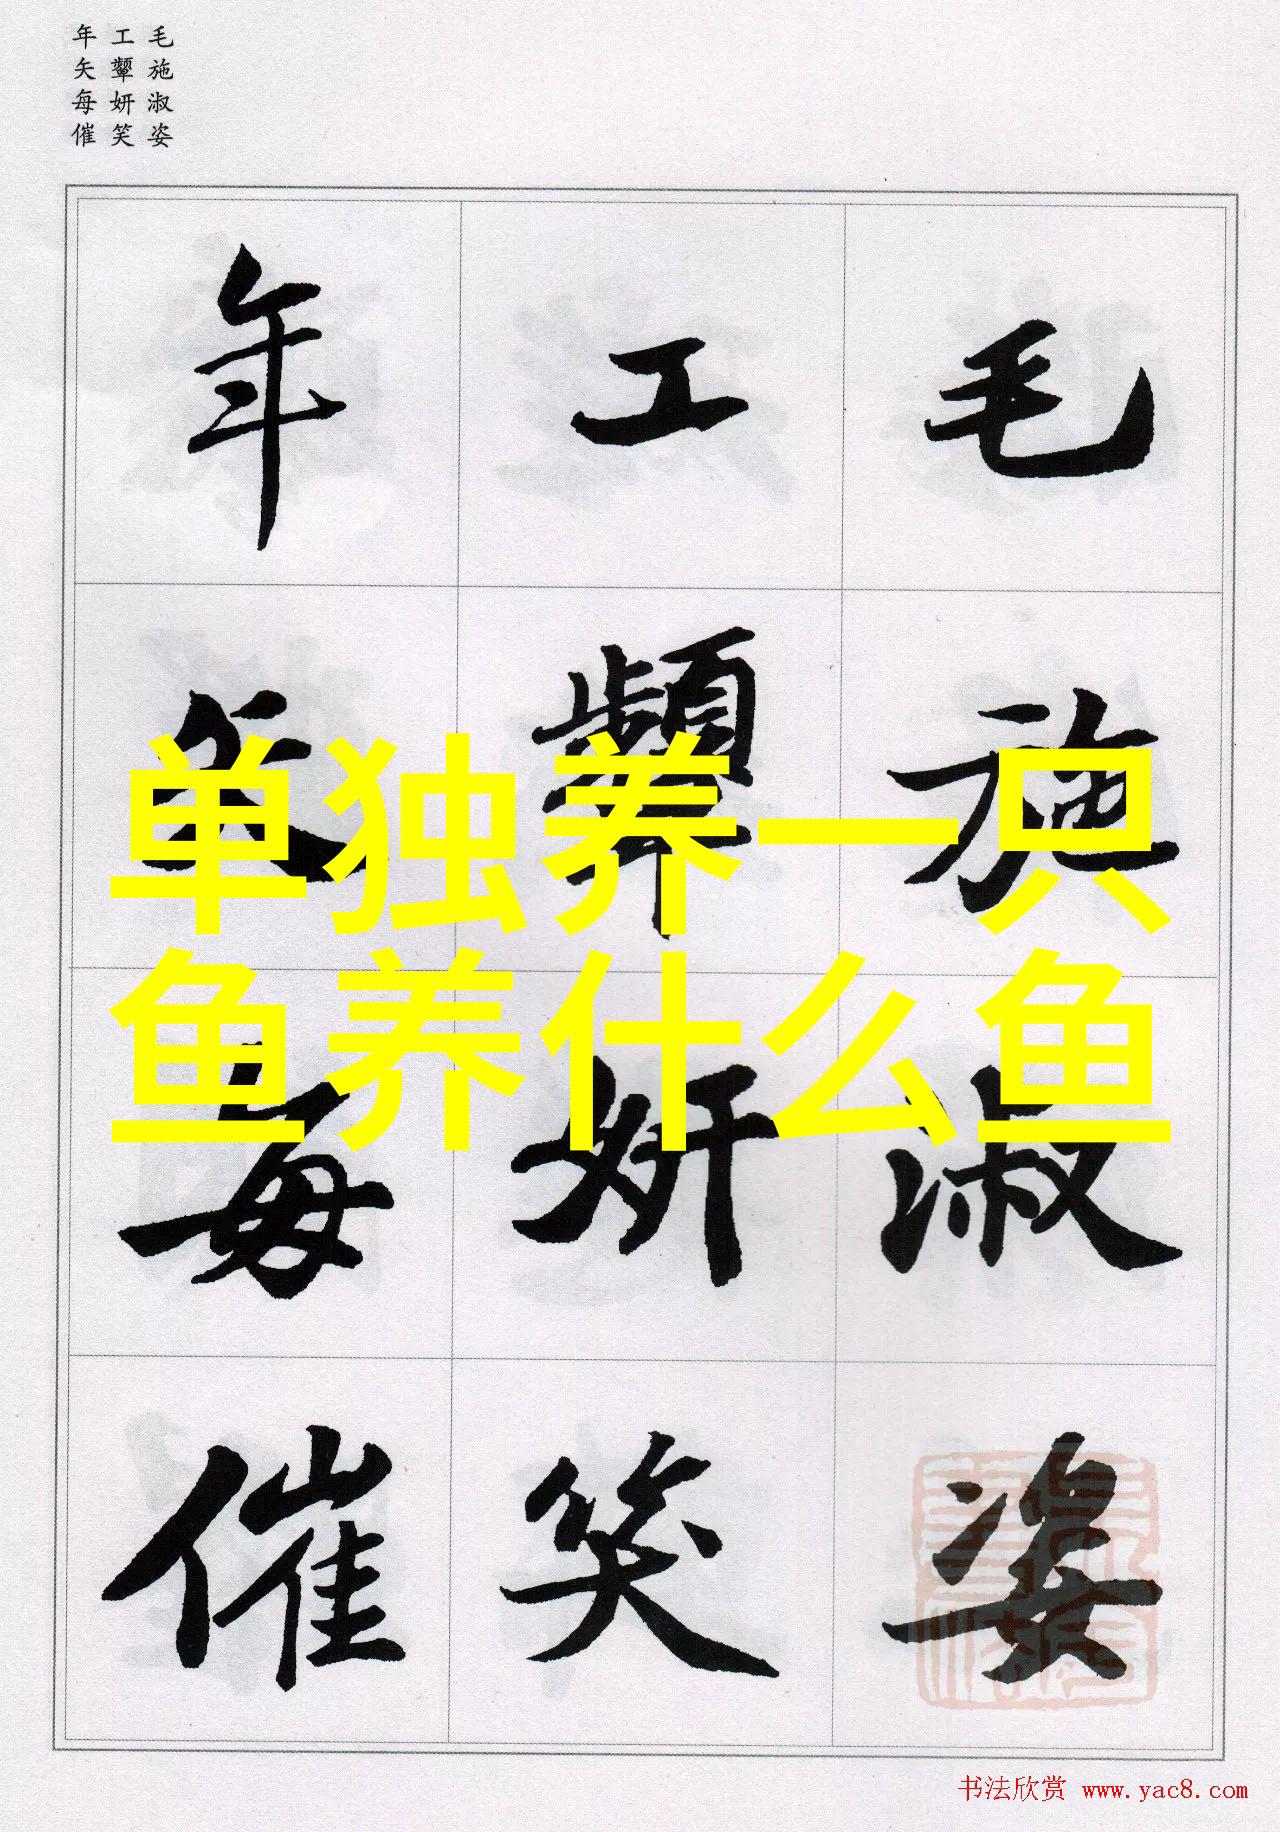 毛施淑姿
工颦妍笑
年矢每催
单独养一只
鱼养什么鱼
毛施淑姿
工颦妍笑
年矢每催
书法欣赏 www.yac8.com